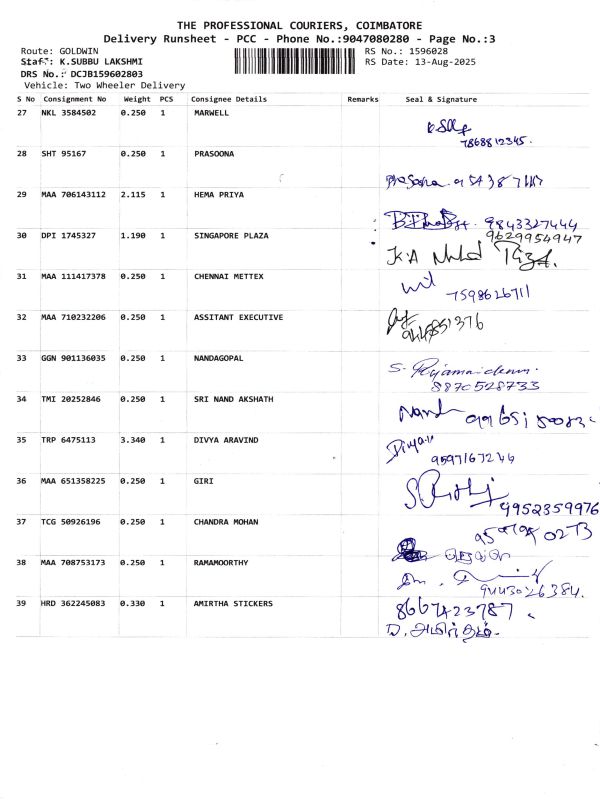 THE PROFESSIONAL COURIERS, COIMBATORE
Delivery Runsheet - PCC - Phone No.:9047080280 - Page No.:3
Route: GOLDWIN
RS No.: 1596028
Staff: K.SUBBU LAKSHMI
RS Date: 13-Aug-2025
DRS No.: DCJB159602803
Vehicle: Two Wheeler Delivery
S No Consignment No Weight PCS Consignee Details Remarks Seal & Signature
27 NKL 3584502 0.250 1 MARWELL
7868812345.
28 SHT 95167 0.250 1 PRASOONA
29 MAA 706143112 2.115 1 HEMA PRIYA
9843327444
30 DPI 1745327 1.190 1 SINGAPORE PLAZA
9629954947
31 MAA 111417378 0.250 1 CHENNAI METTEX
7598626711
32 MAA 710232206 0.250 1 ASSITANT EXECUTIVE
33 GGN 901136035 0.250 1 NANDAGOPAL
8870528733
34 TMI 20252846 0.250 1 SRI NAND AKSHATH
Nand
35 TRP 6475113 3.340 1 DIVYA ARAVIND
Divya
9597167244
36 MAA 651358225 0.250 1 GIRI
9952859976
37 TCG 50926196 0.250 1 CHANDRA MOHAN
38 MAA 708753173 0.250 1 RAMAMOORTHY
9443026384.
39 HRD 362245083 0.330 1 AMIRTHA STICKERS
8667423787
D. அமிர்தம்.